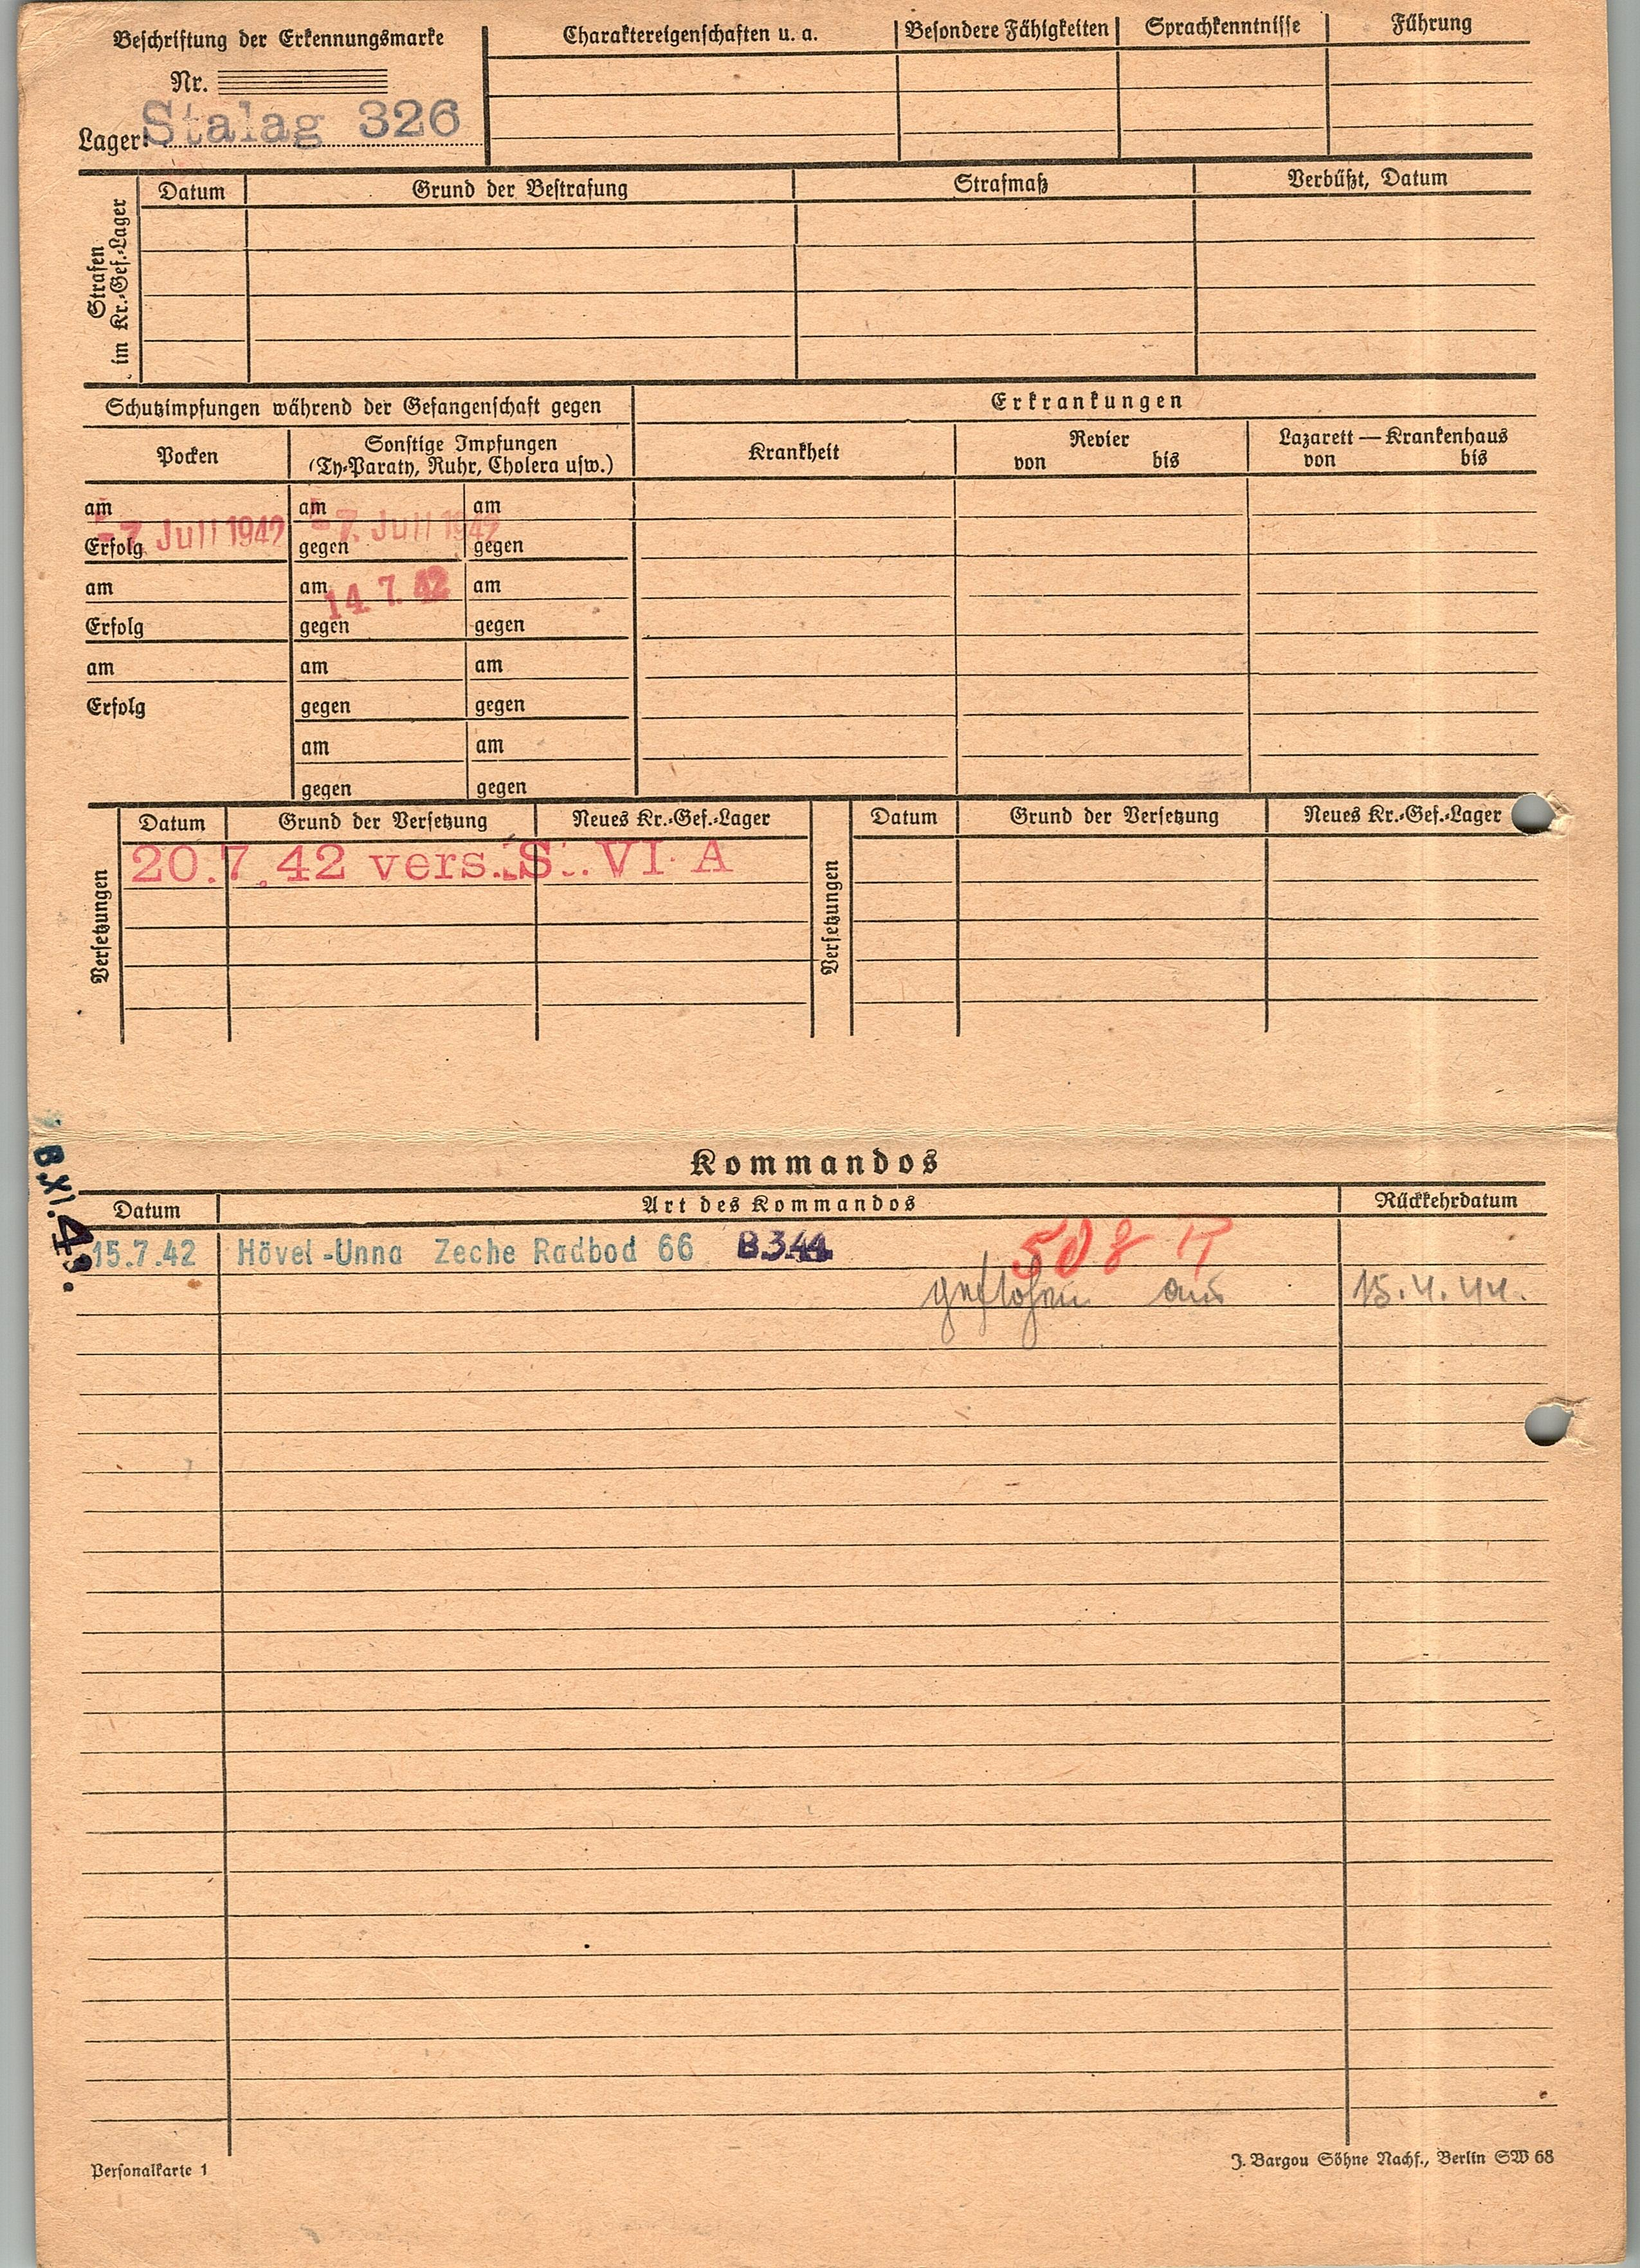 Beschriftung der Erkennungsmarke
Nr.
Lager: Stalag 326
Charaktereigenschaften u. a.
Besondere Fähigkeiten
Sprachkenntnisse
Führung
Strafen
im Kr.-Gef.-Lager
Datum
Grund der Bestrafung
Strafmaß
Verbüßt, Datum
Schutzimpfungen während der Gefangenschaft gegen
Erkrankungen
Pocken
Sonstige Impfungen
(Ty-Paraty, Ruhr, Cholera usw.)
Krankheit
Revier
von bis
Lazarett — Krankenhaus
von bis
am am am
-7. Juli 1942 -7. Juli 1942
Erfolg gegen gegen
am am 14.7.42 am
Erfolg gegen gegen
am am am
Erfolg gegen gegen
am am
gegen gegen
Versetzungen
Datum Grund der Versetzung Neues Kr.-Gef.-Lager
20.7.42 vers. St. VI A
Versetzungen
Datum Grund der Versetzung Neues Kr.-Gef.-Lager
B.XI.43.
Kommandos
Datum Art des Kommandos Rückkehrdatum
15.7.42 Hövel-Unna Zeche Radbod 66 B344 508 R
geflohen am 15.4.44.
Personalkarte 1
J. Bargou Söhne Nachf., Berlin SW 68